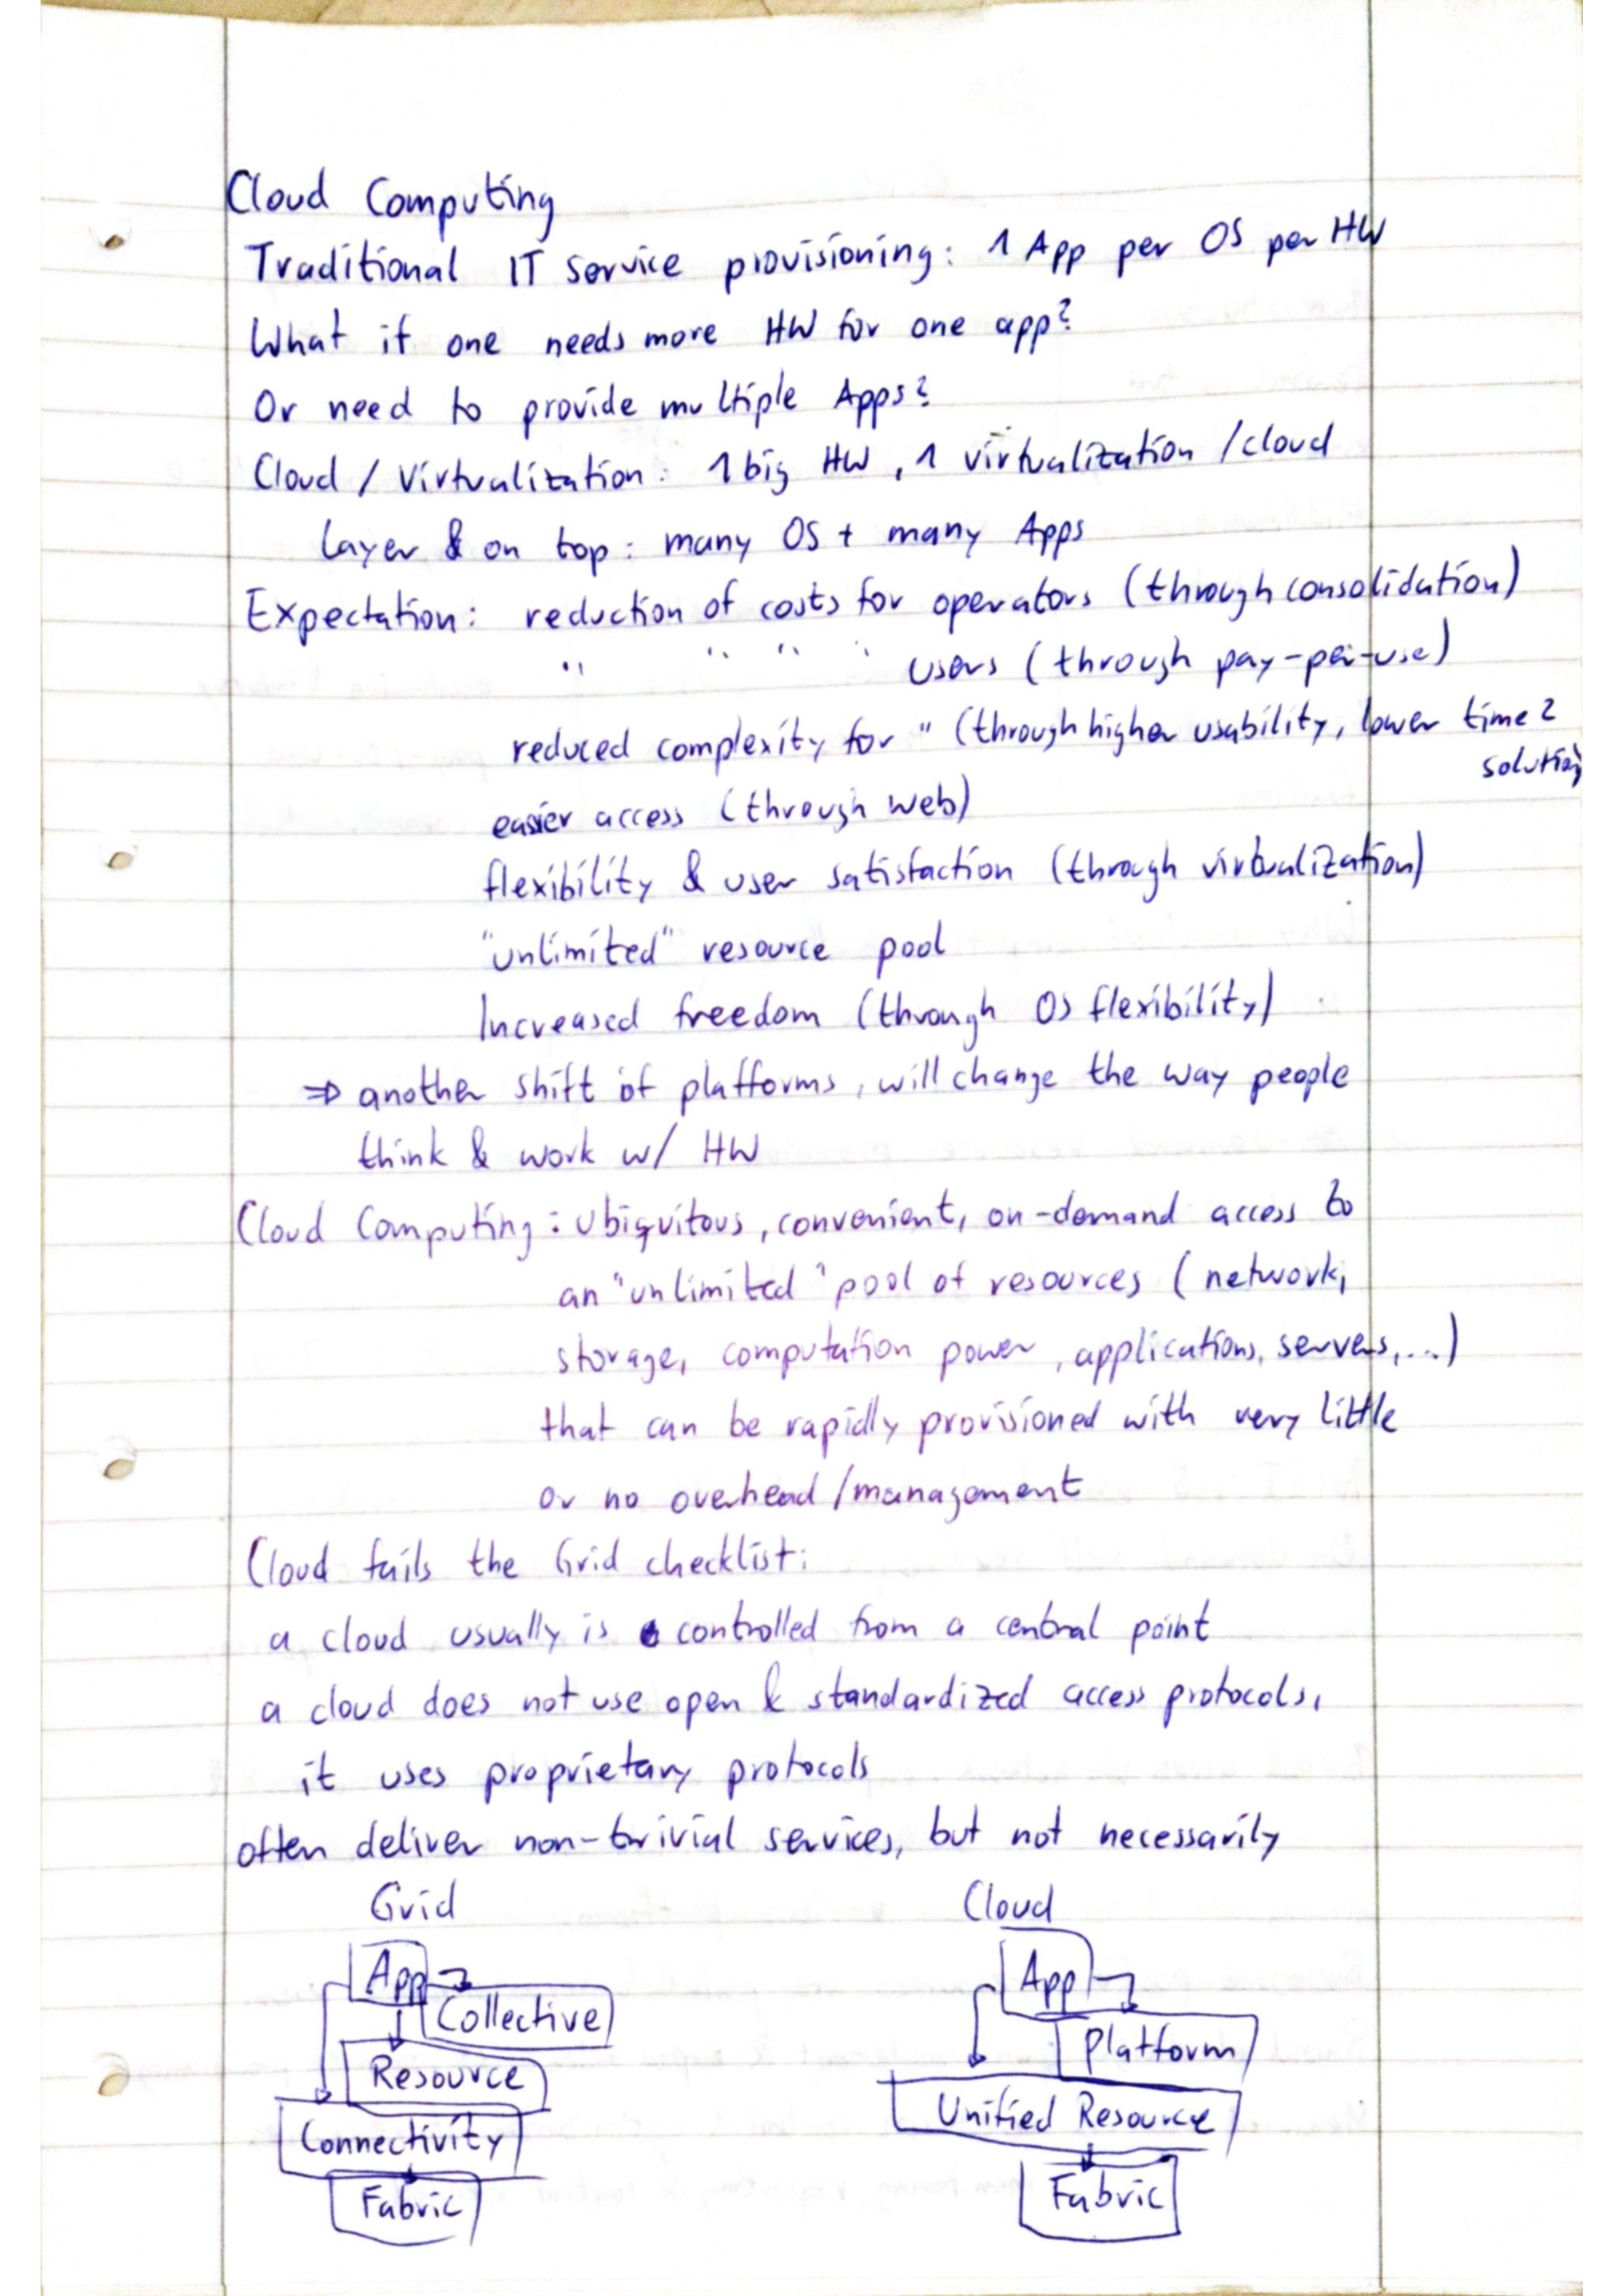 Cloud Computing
Traditional IT service provisioning: 1 App per OS per HW
What if one needs more HW for one app?
Or need to provide multiple Apps?
Cloud / Virtualization: 1 big HW, 1 virtualization / cloud
layer & on top: many OS + many Apps
Expectation: reduction of costs for operators (through consolidation)
" " " " users (through pay-per-use)
reduced complexity for " (through higher usability, lower time 2
solution)
easier access (through web)
flexibility & user satisfaction (through virtualization)
"unlimited" resource pool
Increased freedom (through OS flexibility)
⇒ another shift of platforms, will change the way people
think & work w/ HW
Cloud Computing: Ubiquitous, convenient, on-demand access to
an "unlimited" pool of resources (network,
storage, computation power, applications, servers, ...)
that can be rapidly provisioned with very little
or no overhead/management
Cloud fails the Grid checklist:
a cloud usually is controlled from a central point
a cloud does not use open & standardized access protocols,
it uses proprietary protocols
often deliver non-trivial services, but not necessarily
Grid Cloud
App App
Collective Platform
Resource Unified Resource
Connectivity
Fabric Fabric